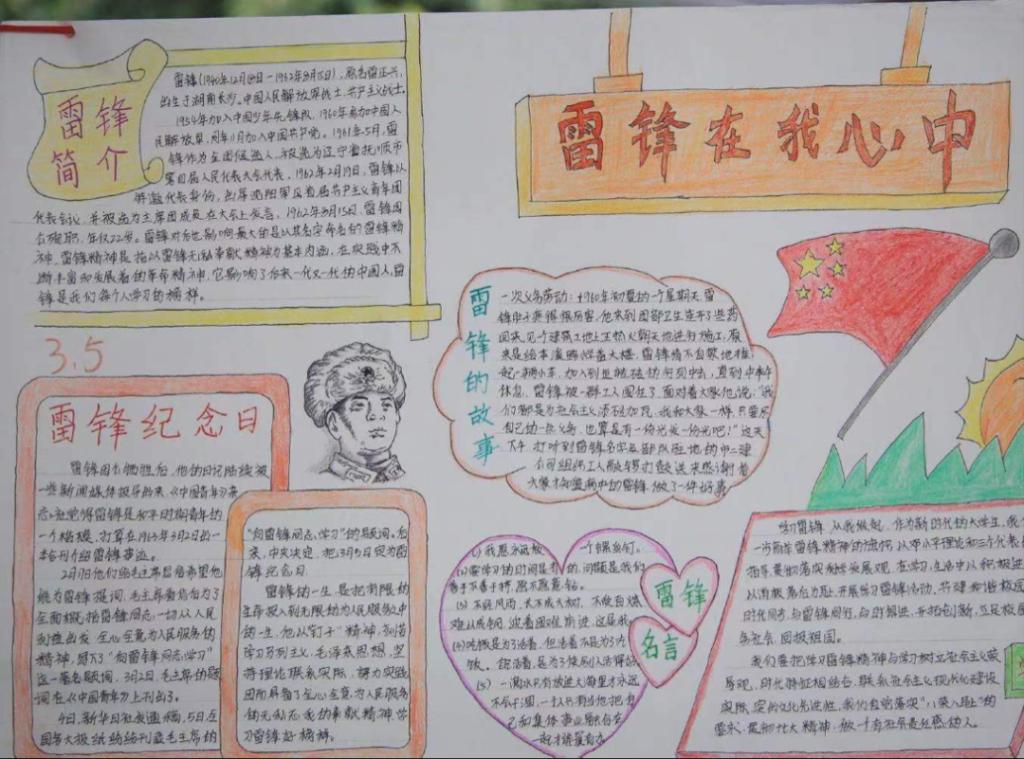 雷锋
简介
雷锋(1940年12月18日－1962年8月15日),原名雷正兴,
出生于湖南长沙。中国人民解放军战士,共产主义战士。
1954年加入中国少年先锋队,1960年参加中国人
民解放军,同年11月加入中国共产党。1961年5月,雷
锋作为全团候选人,被选为辽宁省抚顺市
第四届人民代表大会代表。1962年2月19日,雷锋以
特邀代表身份,出席沈阳军区首届共产主义青年团
代表会议,并被选为主席团成员在大会上发言。1962年8月15日,雷锋因
公殉职,年仅22岁。雷锋对后世影响最大的是以其名字命名的雷锋精
神,雷锋精神是指以雷锋无私奉献精神为基本内涵,在实践中不
断丰富和发展着的革命精神,它影响了后来一代又一代的中国人,雷
锋是我们每个人学习的榜样。
雷锋在我心中
3.5
雷锋纪念日
雷锋因公牺牲后,他的日记陆续被
一些新闻媒体报导出来,《中国青年》杂
志社觉得雷锋是和平时期青年的
一个楷模,打算在1963年3月2日出一
本合刊介绍雷锋事迹。
2月17日他们给毛主席写信希望他
能为雷锋提词,毛主席看信后为了
全面概括雷锋同志一切从人民
利益出发 全心全意为人民服务的
精神,题下了"向雷锋同志学习"
这一著名题词。3月2日,毛主席的题
词在《中国青年》上刊出了。
今日,新华日社发通稿,5日全
国各大报纸纷纷刊登毛主席的
"向雷锋同志学习"的题词。后
来,中央决定,把3月5日定为雷
锋纪念日
雷锋的一生是把有限的
生命投入到无限的为人民服务之中
的一生,他以"钉子"精神,刻苦
学习马列主义、毛泽东思想,坚
持理论联系实际,努力实践
因而具备了全心全意为人民服务
的无私忘我的奉献精神 学
习雷锋好榜样。
雷锋的故事
一次义务劳动:1960年初夏的一个星期天,雷
锋肚子疼得很厉害,他来到团部卫生连开了些药
回来,见一个建筑工地上正热火朝天地进行施工,原
来是给本溪路小学盖大楼,雷锋情不自禁地推
起一辆小车,加入到运砖的行列中去,直到中午
休息,雷锋被一群工人围住了 面对着大家他说:"我
们都是为社会主义添砖加瓦,我和大家一样,只要尽
自己的一点义务,也算是有一份光发一份光吧!"这天
下午 打听到雷锋名字及部队驻地的
公司组织工人敲锣打鼓送来感谢信
大家才知道病中的雷锋 做了一件好事
雷锋
名言
(1) 我愿永远做一个螺丝钉。
(2)要学习的时间是有的,问题是我们
善于不善于挤,愿不愿意钻。
(3) 不经风雨,长不成大树,不受百炼
难以成钢,迎着困难前进,这是我
(4)吃饭是为了活着,但活着不是为了吃
饭。我活着,是为了使别人活得好
(5) 一滴水只有放进大海里才永远
不会干涸,一个人只有当他把自
己和集体事业融合在
一起才能最有力
学习雷锋,从我做起。作为新时代的大学生,我
市
时代同步,与雷锋同行,
务社会,回报祖国。
我们要把学习雷锋精神与学习树立社会主义荣
辱观,时代特征相结合,联系社会主义现代化建设